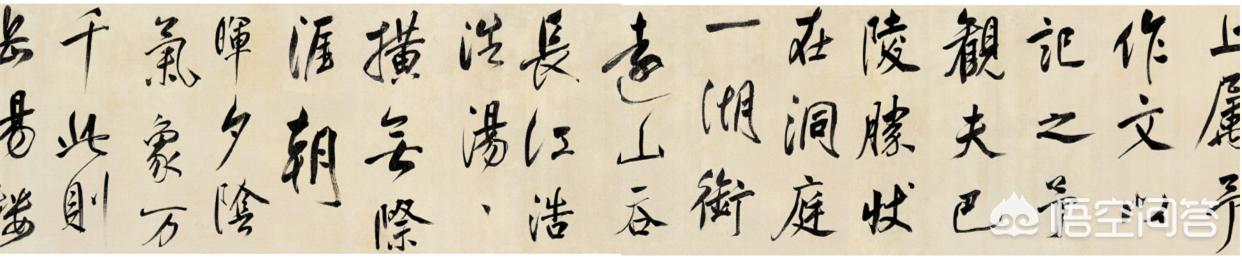 上属予
作文以
記之予
觀夫巴
陵勝状
在洞庭
一湖銜
遠山吞
長江浩
浩湯、
横無際
涯朝
暉夕陰
氣象万
千此則
岳陽楼
悟空问答